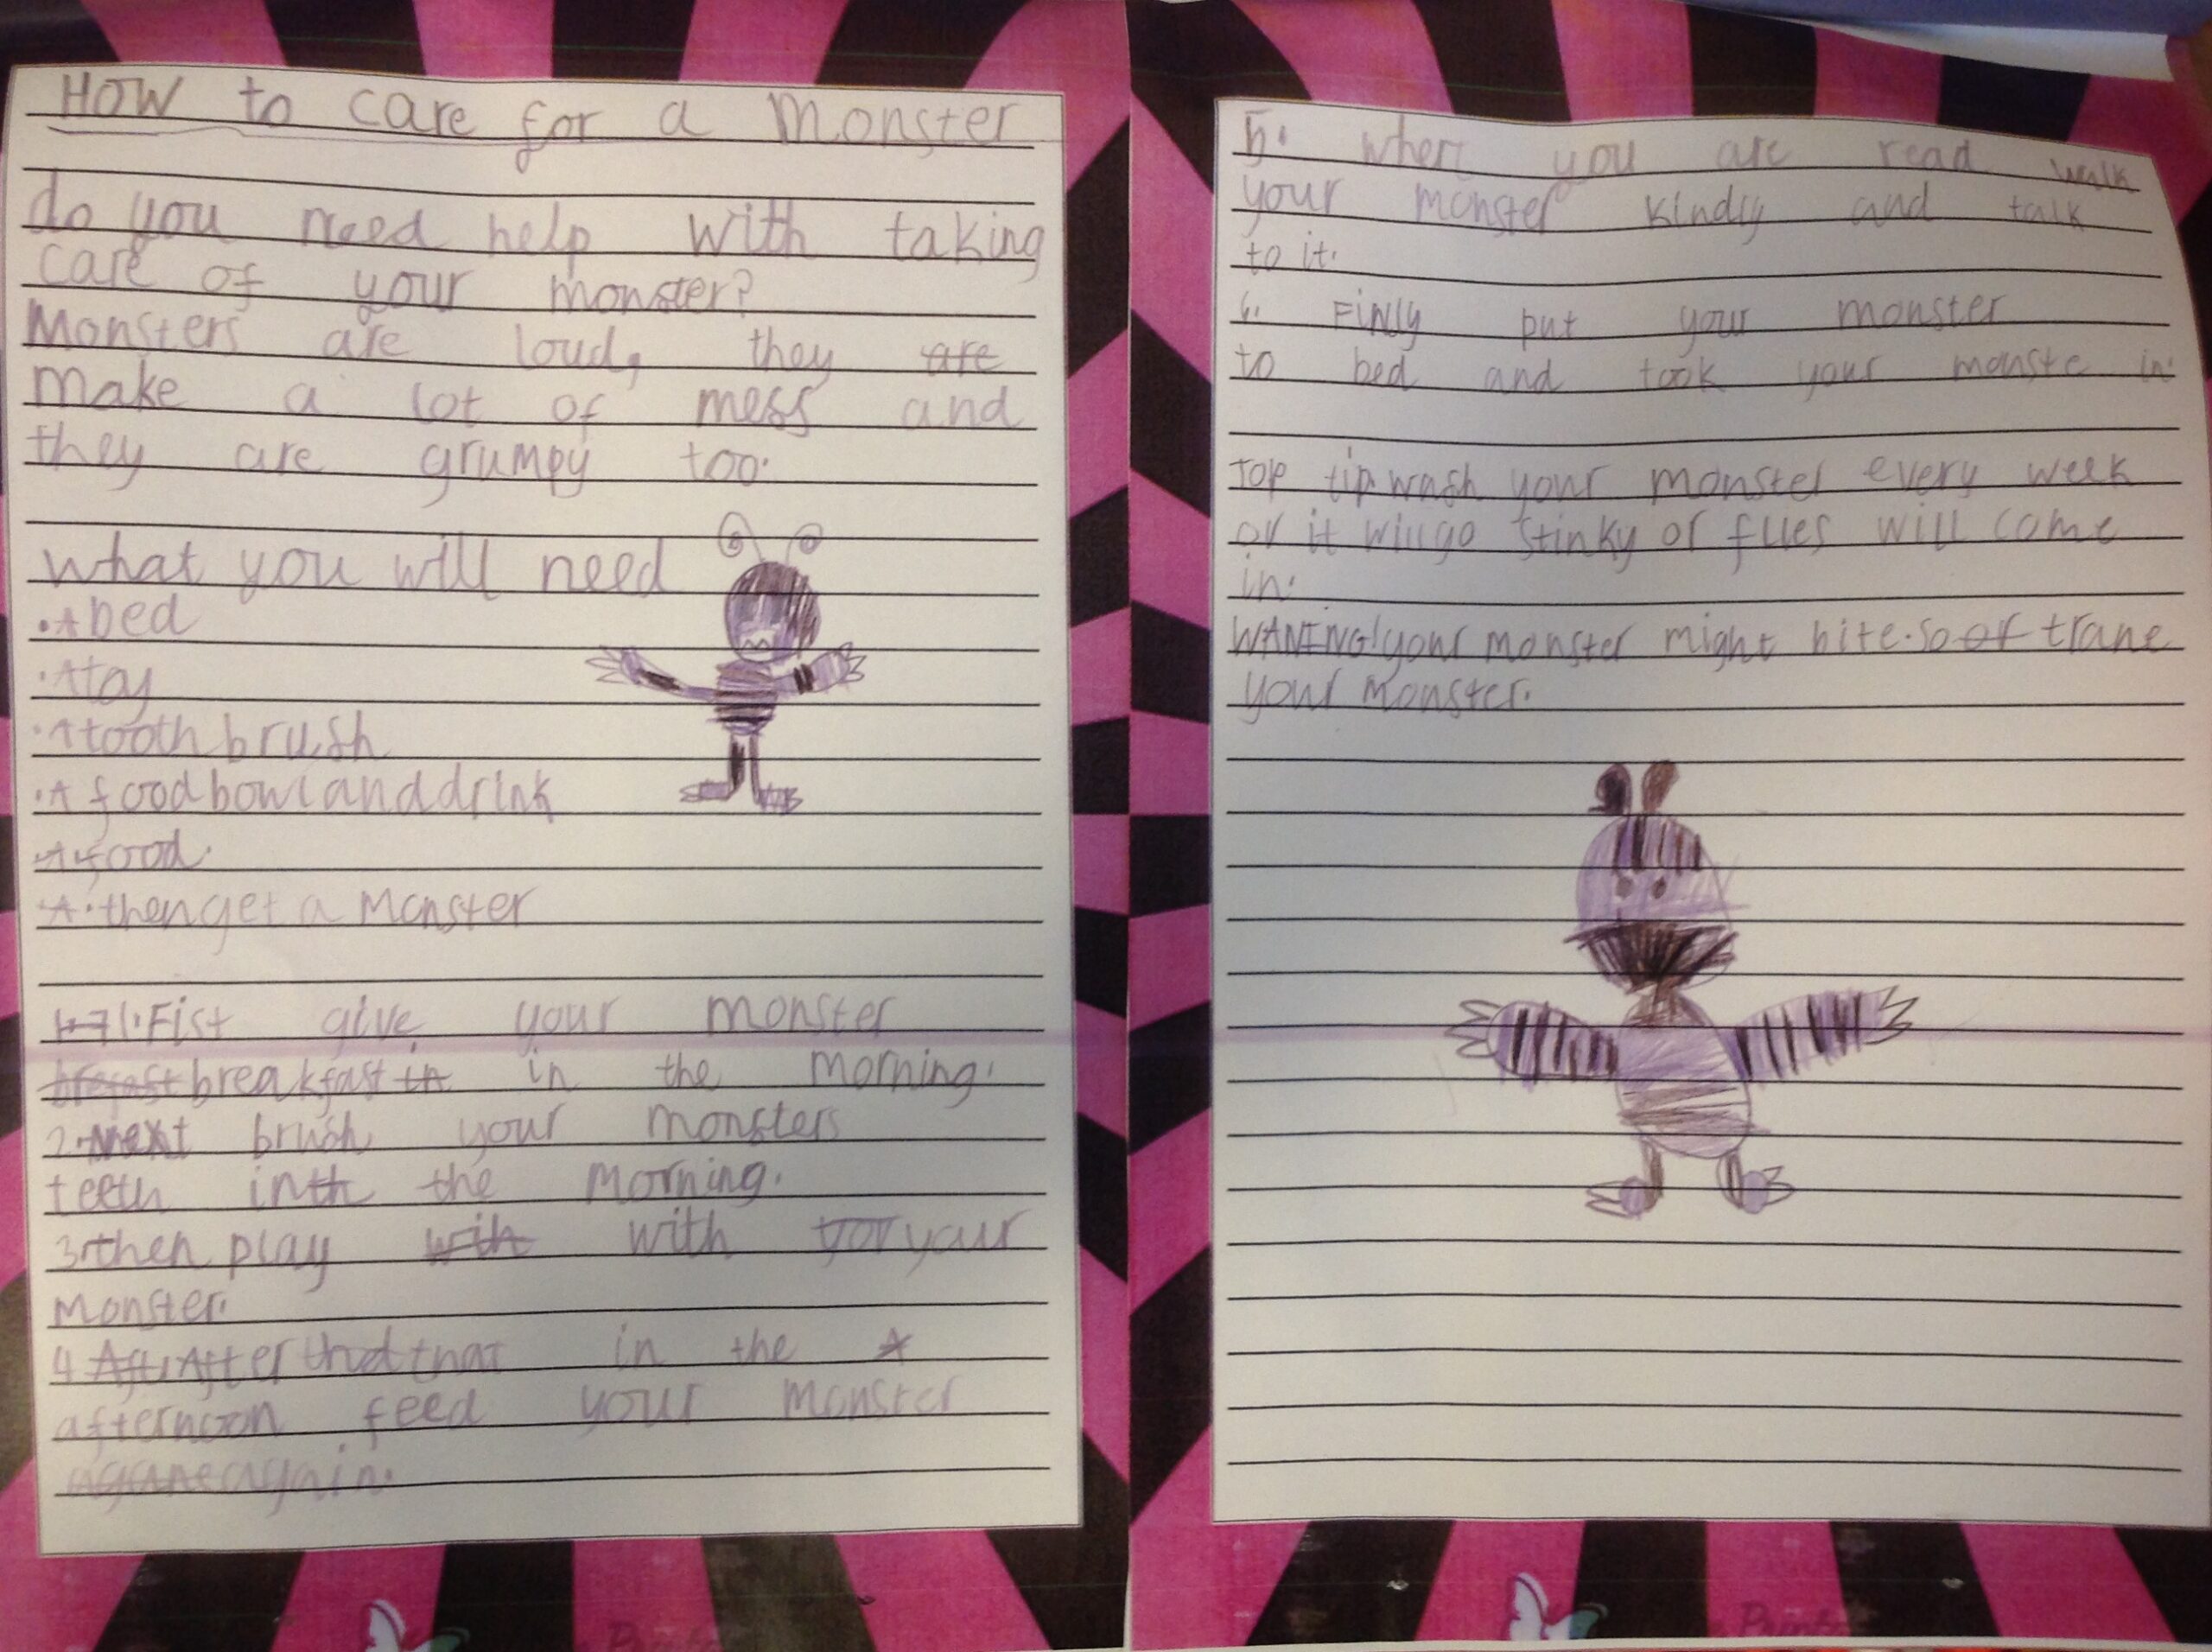 How to care for a Monster
do you need help with taking
care of your monster?
Monsters are loud, they are
make a lot of mess and
they are grumpy too.
what you will need
• A bed
• A toy
• A tooth brush
• A food bowl and drink
• A food.
• A • then get a Monster
1. Fist give your monster
brefast breakfast in in the morning.
2. Next brush your monsters
teeth in th the morning.
3. then play with with your
monster.
4 After that in the A
afternoon feed your monster
agane again.
5. when you are read walk
your monster kindly and talk
to it.
6. Finly put your monster
to bed and took your monste in.
Top tip wash your monster every week
or it will go stinky or flies will come
in.
WANING! your monster might bite. So of trane
your monster.